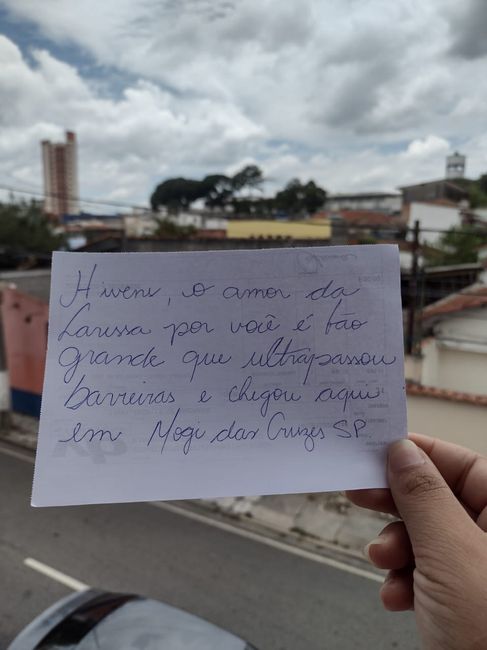 Hiveni, o amor da
Larissa por você é tão
grande que ultrapassou
barreiras e chegou aqui
em Mogi das Cruzes SP